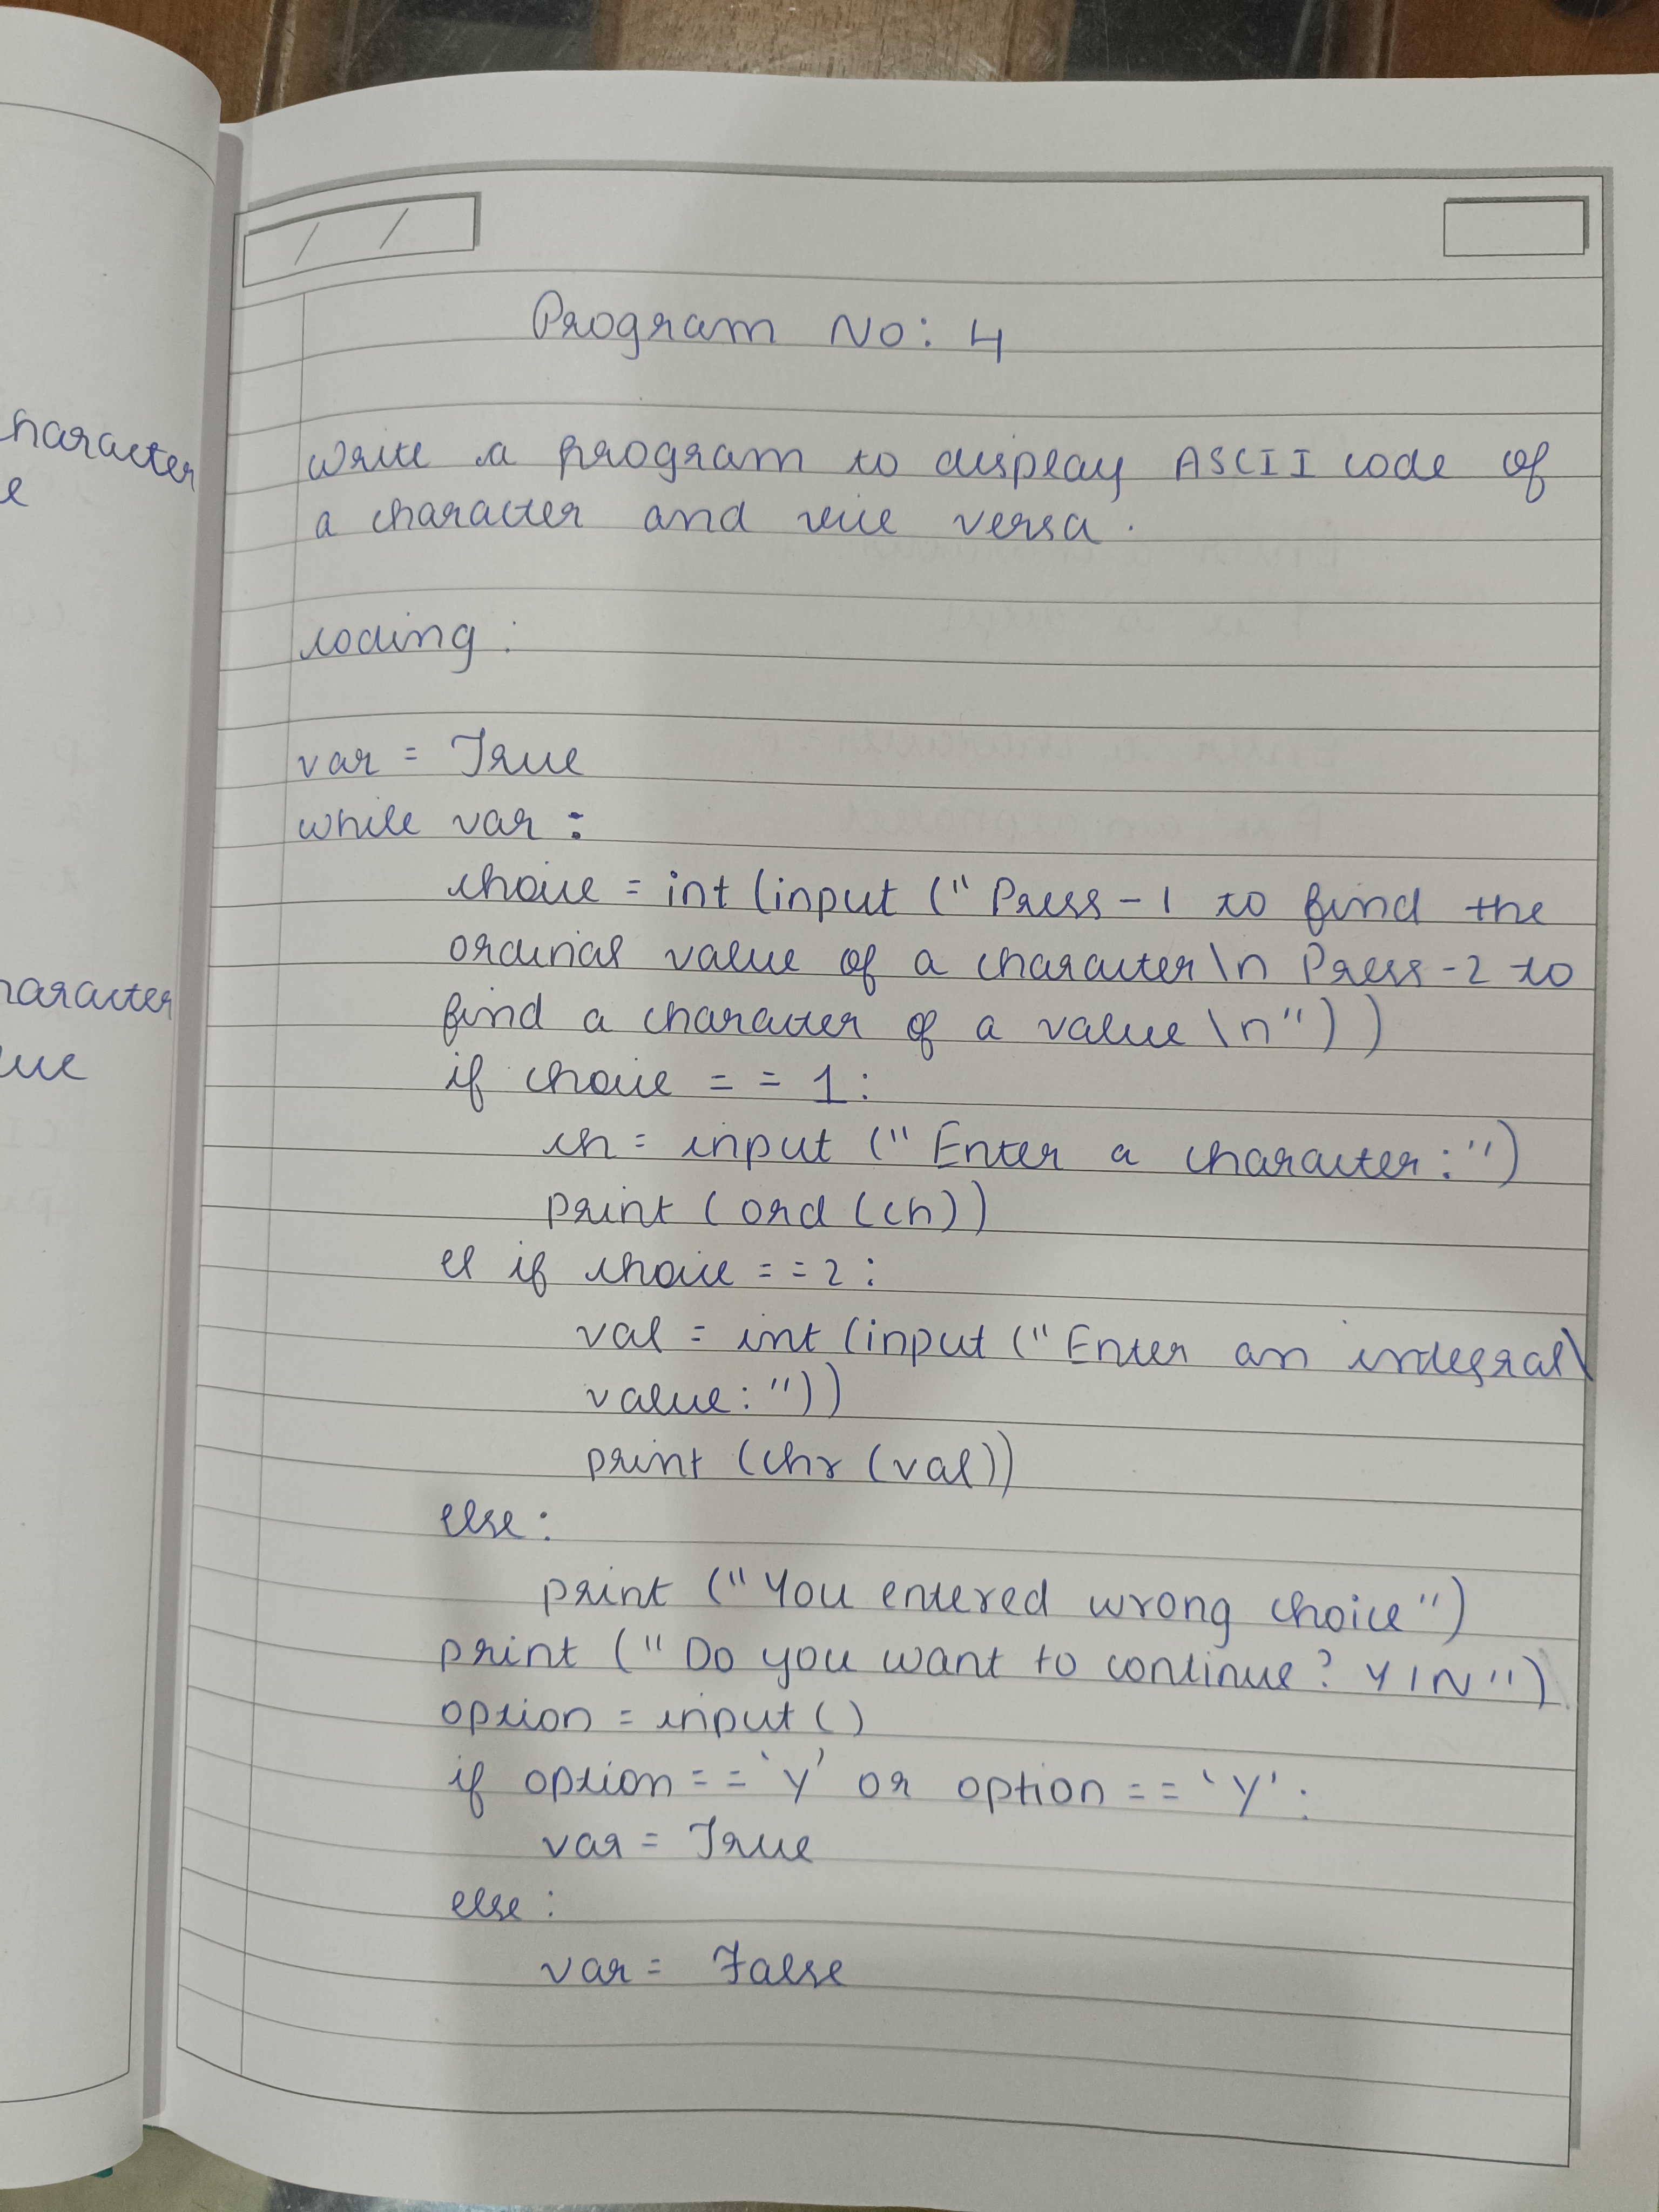 haracter
e
haracter
ue
Program No: 4
Write a program to display ASCII code of
a character and vice versa.
coding:
var = True
while var:
choice = int (input (" Press - 1 to find the
ordinal value of a character \n Press - 2 to
find a character of a value \n"))
if choice = = 1:
ch = input (" Enter a character: ")
print (ord (ch))
el if choice = = 2:
val = int (input (" Enter an integral\
value: "))
print (chr (val))
else:
print (" You entered wrong choice")
print (" Do you want to continue? Y/N")
option = input ()
if option = = 'y' or option = = 'Y':
var = True
else:
var = False